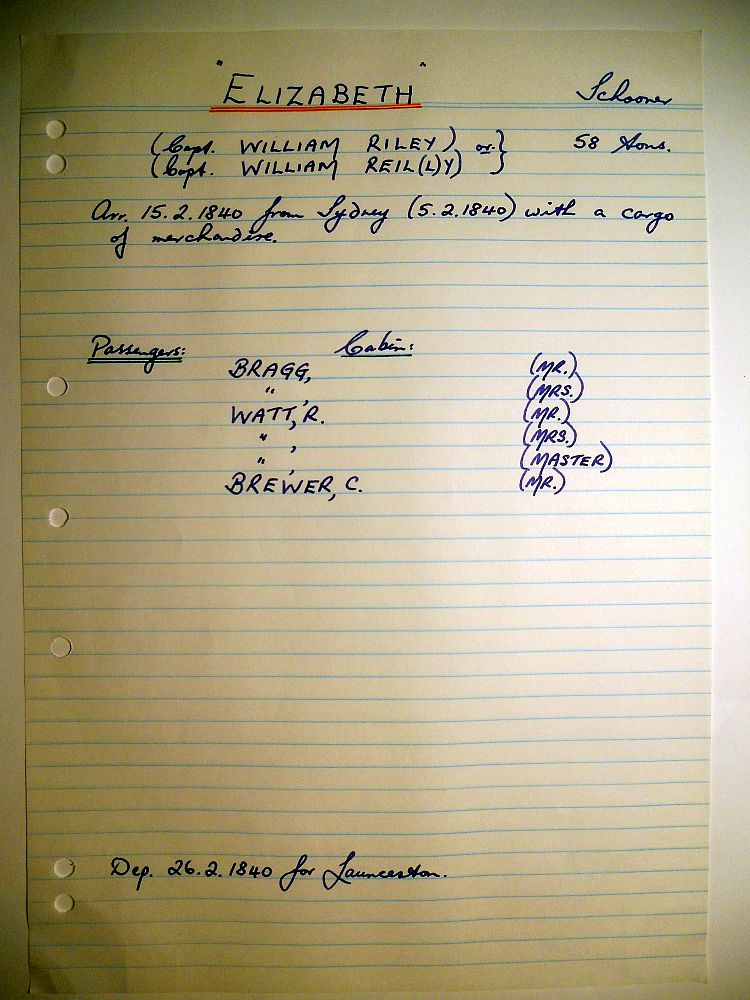 "ELIZABETH" Schooner
(Capt. WILLIAM RILEY) or } 58 Tons.
(Capt. WILLIAM REIL(L)Y) }
Arr. 15.2.1840 from Sydney (5.2.1840) with a cargo
of merchandise.
Passengers: Cabin:
BRAGG, (MR.)
" , (MRS.)
WATT, R. (MR.)
" , (MRS.)
" , (MASTER)
BREWER, C. (MR.)
Dep. 26.2.1840 for Launceston.